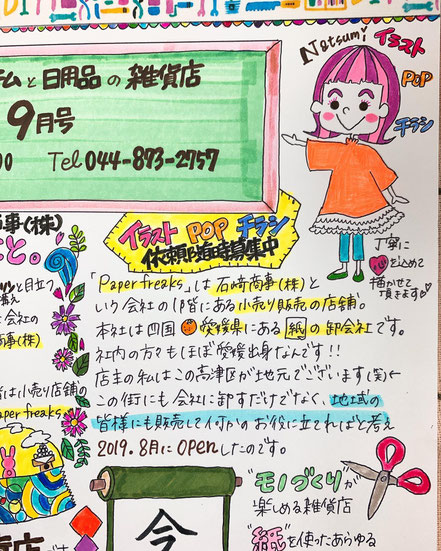 テムと日用品の雑貨店
9月号
00 Tel 044-873-2757
Natsumi
イラスト
POP
チラシ
イラスト POP チラシ
依頼随時募集中
丁寧に
心を込めて
描かせて
頂きます
商事(株)
こと。
「Paper freaks」は石崎商事(株)と
いう会社の1階にある小売り販売の店舗。
本社は四国愛媛県にある紙の卸会社です。
社内の方々もほぼ愛媛出身なんです!!
店主の私はこの高津区が地元でございます(笑)←
この街にも会社に卸すだけでなく、地域の
皆様にも販売して何かのお役に立てればと考え
2019.8月にOPENしたのです。
と目立つ
考え
会社の
商事(株)
は小売り店舗の
Paper freaks
今
"モノづくり"が
楽しめる雑貨店
"紙"を使ったあらゆる
貨店